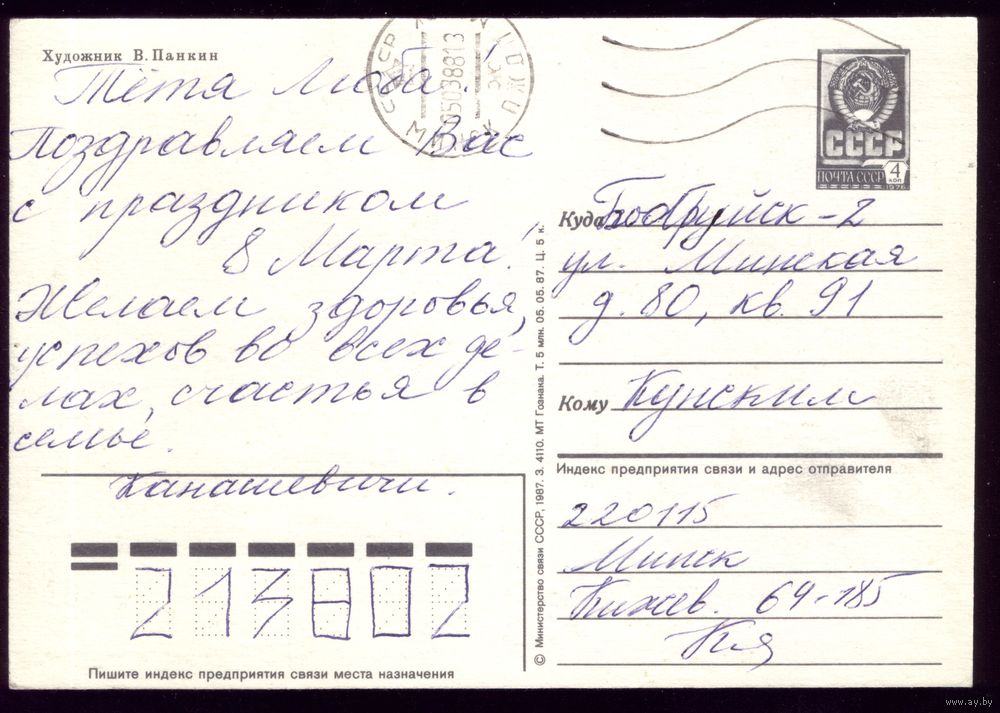 Художник В. Панкин
Тётя Люба!
Поздравляем Вас
с праздником
8 Марта!
Желаем здоровья,
успехов во всех де-
лах, счастья в
семье.
Канашевичи.
213802
Пишите индекс предприятия связи места назначения
© Министерство связи СССР, 1987. З. 4110. МТ Гознака. Т. 5 млн. 05. 05. 87. Ц. 5 к.
СССР
МИНСК
СССР
ПОЧТА СССР
4 коп
1976
Куда Бобруйск-2
ул. Минская
д. 80, кв. 91
Кому Кунским
Индекс предприятия связи и адрес отправителя
220115
Минск
Кижев. 64-185
www.ay.by